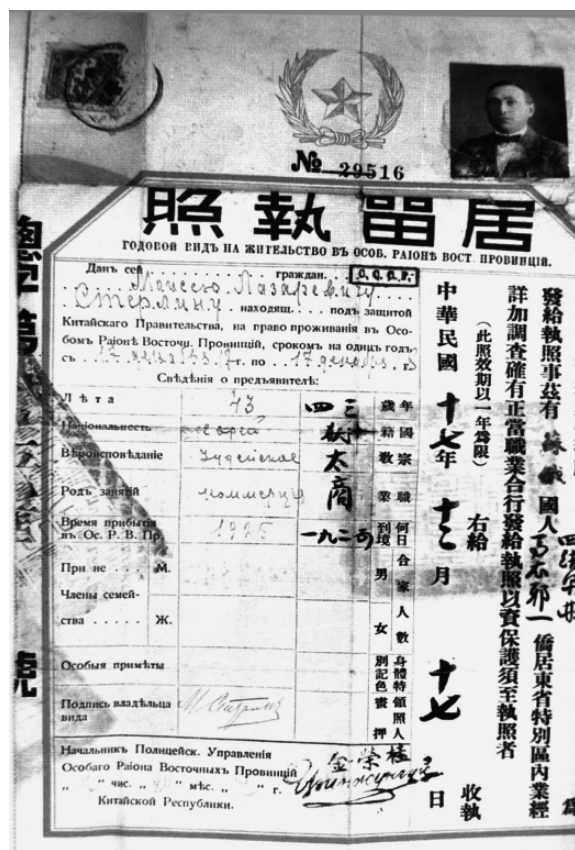 № 29516
居留執照
ГОДОВОЙ ВИДЪ НА ЖИТЕЛЬСТВО ВЪ ОСОБ. РАІОНѢ ВОСТ. ПРОВИНЦІИ.
Данъ сей граждан. С.С.С.Р.
Моисею Лазаревичу
Стерлину находящ. подъ защитой
Китайскаго Правительства, на право проживанія въ Осо-
бомъ Раіонѣ Восточн. Провинцій, срокомъ на одинъ годъ
съ 17 декабря г. по 17 декабря г.
Свѣдѣнія о предъявителѣ:
Лѣта 43 四三 年歲
Національность еврей 國籍
Вѣроисповѣданіе Іудейское 太 宗教
Родъ занятій коммерція 商 職業
Время прибытія
въ Ос. Р. В. Пр. 1925 一九二 何日到境
При не М. 男
Члены семей-
ства Ж. 女
合家人數
Особыя примѣты 身體特別記色
Подпись владѣльца
вида 領照人畫押
Начальникъ Полицейск. Управленія
Особаго Раіона Восточныхъ Провинцій 金榮桂
„ “ чис. „ “ мѣс. „ “ г.
Китайской Республики.
發給執照事茲有 蘇 國人 僑居東省特別區內業經
詳加調查確有正當職業合行發給執照以資保護須至執照者
(此照效期以一年爲限) 右給 收執
中華民國十七年十二月十七日